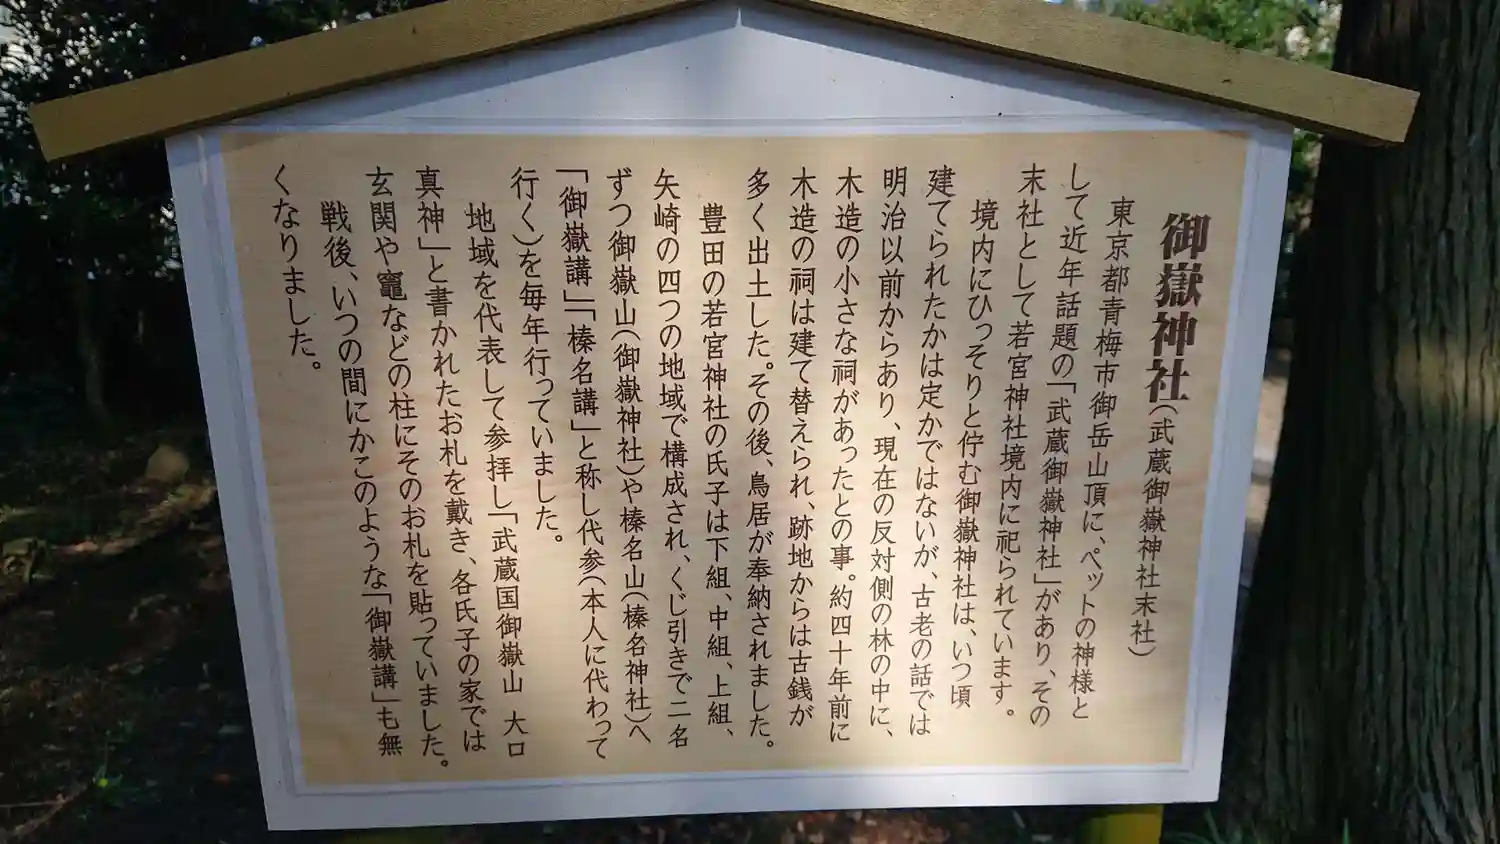 御嶽神社(武蔵御嶽神社末社)
東京都青梅市御岳山頂に、ペットの神様と
して近年話題の「武蔵御嶽神社」があり、その
末社として若宮神社境内に祀られています。
境内にひっそりと佇む御嶽神社は、いつ頃
建てられたかは定かではないが、古老の話では
明治以前からあり、現在の反対側の林の中に、
木造の小さな祠があったとの事。約四十年前に
木造の祠は建て替えられ、跡地からは古銭が
多く出土した。その後、鳥居が奉納されました。
豊田の若宮神社の氏子は下組、中組、上組、
矢崎の四つの地域で構成され、くじ引きで二名
ずつ御嶽山(御嶽神社)や榛名山(榛名神社)へ
「御嶽講」「榛名講」と称し代参(本人に代わって
行く)を毎年行っていました。
地域を代表して参拝し「武蔵国御嶽山 大口
真神」と書かれたお札を戴き、各氏子の家では
玄関や竈などの柱にそのお札を貼っていました。
戦後、いつの間にかこのような「御嶽講」も無
くなりました。